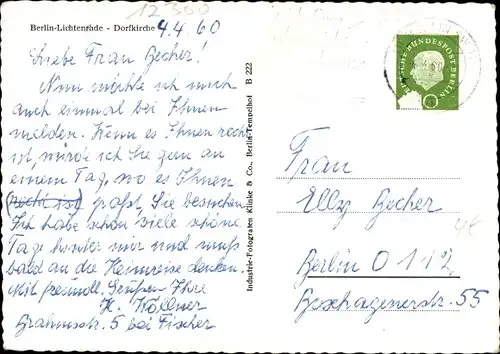 12300
Berlin-Lichtenrade - Dorfkirche
4.4.60
Liebe Frau Becher!
Nun möchte ich mich
auch einmal bei Ihnen
melden. Wenn es Ihnen recht
ist, würde ich Sie gern an
einem Tag, wo es Ihnen
(recht ist) paßt, Sie besuchen.
Ich habe schon viele schöne
Tage hinter mir und muß
bald an die Heimreise denken.
Mit freundl. Grüßen Ihre
H. Köllner
Brahmsstr. 5 bei Fischer
Industrie-Fotografen Klinke & Co., Berlin-Tempelhof B 222
DEUTSCHE BUNDESPOST BERLIN
Frau
Elly Becher
Berlin O 112
Boxhagenerstr. 55
4€